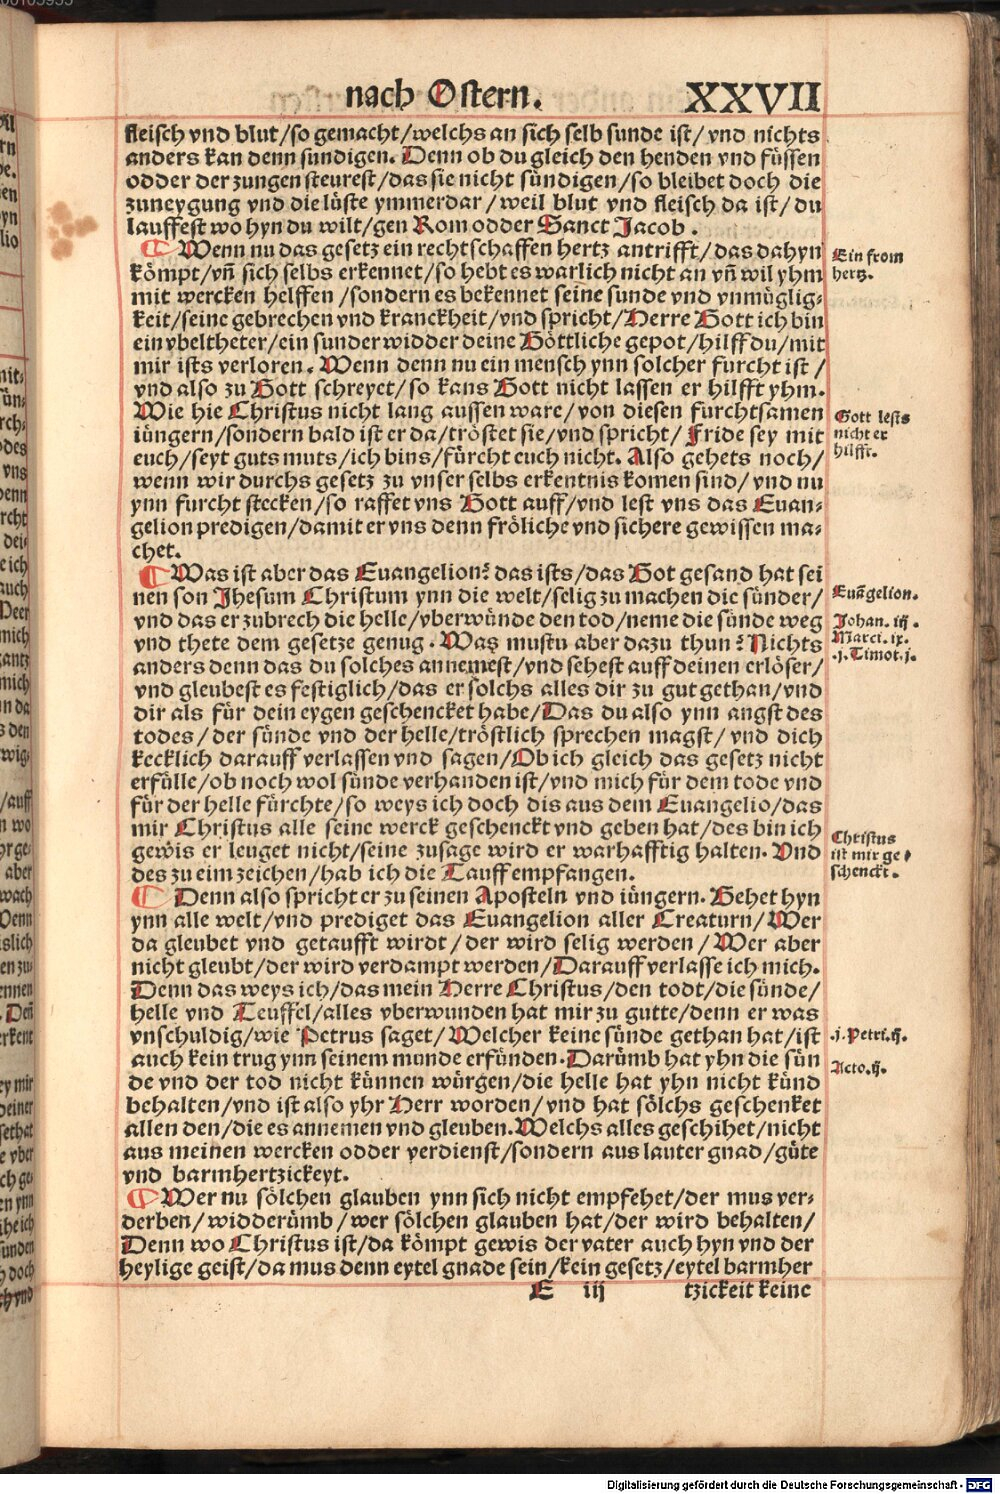 nach Ostern. XXVII
fleisch vnd blut/so gemacht/welchs an sich selb sunde ist/vnd nichts
anders kan denn sundigen. Denn ob du gleich den henden vnd füssen
odder der zungen steurest/das sie nicht sündigen/so bleibet doch die
zuneygung vnd die lüste ymmerdar/weil blut vnd fleisch da ist/du
lauffest wo hyn du wilt/gen Rom odder Sanct Jacob.
¶ Wenn nu das gesetz ein rechtschaffen hertz antrifft/das dahyn
kömpt/vñ sich selbs erkennet/so hebt es warlich nicht an vñ wil yhm
mit wercken helffen/sondern es bekennet seine sunde vnd vnmüglig⸗
keit/seine gebrechen vnd kranckheit/vnd spricht/Herre Gott ich bin
ein vbeltheter/ein sunder widder deine Göttliche gepot/hilff du/mit
mir ists verloren. Wenn denn nu ein mensch ynn solcher furcht ist/
vnd also zu Gott schreyet/so kans Gott nicht lassen er hilfft yhm.
Wie hie Christus nicht lang aussen ware/von diesen furchtsamen
iüngern/sondern bald ist er da/tröstet sie/vnd spricht/Fride sey mit
euch/seyt guts muts/ich bins/fürcht euch nicht. Also gehets noch/
wenn wir durchs gesetz zu vnser selbs erkentnis komen sind/vnd nu
ynn furcht stecken/so raffet vns Gott auff/vnd lest vns das Euan⸗
gelion predigen/damit er vns denn fröliche vnd sichere gewissen ma⸗
chet.
¶ Was ist aber das Euangelion? das ists/das Got gesand hat sei
nen son Jhesum Christum ynn die welt/selig zu machen die sünder/
vnd das er zubrech die helle/vberwünde den tod/neme die sünde weg
vnd thete dem gesetze genug. Was mustu aber dazu thun? Nichts
anders denn das du solches annemest/vnd sehest auff deinen erlöser/
vnd gleubest es festiglich/das er solchs alles dir zu gut gethan/vnd
dir als für dein eygen geschencket habe/Das du also ynn angst des
todes/der sünde vnd der helle/tröstlich sprechen magst/vnd dich
kecklich darauff verlassen vnd sagen/Ob ich gleich das gesetz nicht
erfülle/ob noch wol sünde verhanden ist/vnd mich für dem tode vnd
für der helle fürchte/so weys ich doch dis aus dem Euangelio/das
mir Christus alle seine werck geschenckt vnd geben hat/des bin ich
gewis er leuget nicht/seine zusage wird er warhafftig halten. Vnd
des zu eim zeichen/hab ich die Tauff empfangen.
¶ Denn also spricht er zu seinen Aposteln vnd iüngern. Gehet hyn
ynn alle welt/vnd prediget das Euangelion aller Creaturn/Wer
da gleubet vnd getaufft wirdt/der wird selig werden/Wer aber
nicht gleubt/der wird verdampt werden/Darauff verlasse ich mich.
Denn das weys ich/das mein Herre Christus/den todt/die sünde/
helle vnd Teuffel/alles vberwunden hat mir zu gutte/denn er was
vnschuldig/wie Petrus saget/Welcher keine sünde gethan hat/ist
auch kein trug ynn seinem munde erfünden. Darümb hat yhn die sün
de vnd der tod nicht künnen würgen/die helle hat yhn nicht künd
behalten/vnd ist also yhr Herr worden/vnd hat sölchs geschenket
allen den/die es annemen vnd gleuben. Welchs alles geschihet/nicht
aus meinen wercken odder verdienst/sondern aus lauter gnad/güte
vnd barmhertzickeyt.
¶ Wer nu sölchen glauben ynn sich nicht empfehet/der mus ver⸗
derben/widderümb/wer sölchen glauben hat/der wird behalten/
Denn wo Christus ist/da kömpt gewis der vater auch hyn vnd der
heylige geist/da mus denn eytel gnade sein/kein gesetz/eytel barmher
E iij tzickeit keine
Ein from
hertz.
Gott lests
nicht er
hilfft.
Euãgelion.
Johan. iij.
Marci. ix.
.j. Timot. j.
Christus
ist mir ge⸗
schenckt.
.j. Petri. ij.
Acto. ij.
Digitalisierung gefördert durch die Deutsche Forschungsgemeinschaft - DFG